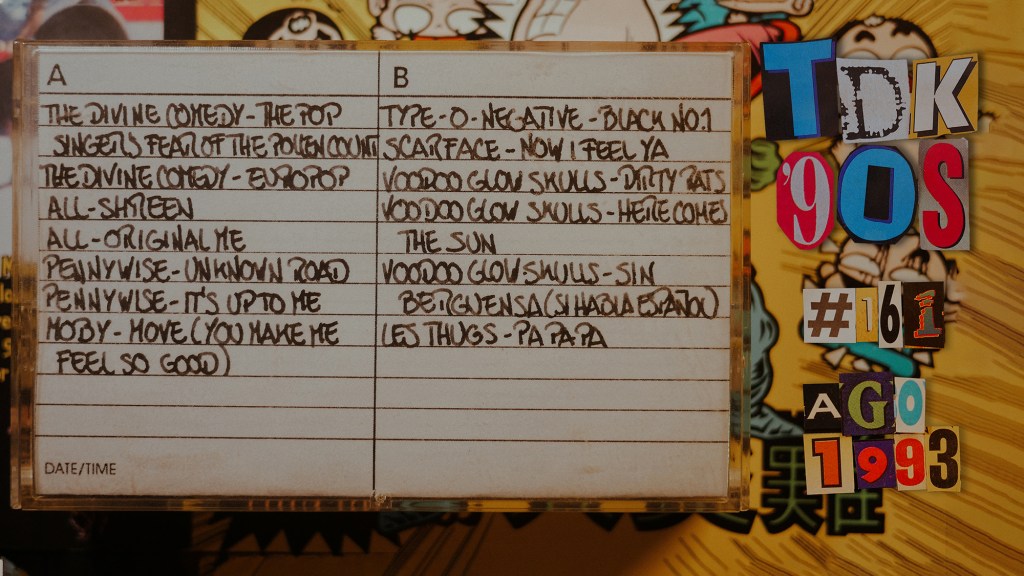 A
THE DIVINE COMEDY - THE POP
SINGER'S FEAR OF THE POLLEN COUNT
THE DIVINE COMEDY - EUROPOP
ALL - SHREEN
ALL - ORIGINAL ME
PENNYWISE - UNKNOWN ROAD
PENNYWISE - IT'S UP TO ME
MOBY - MOVE (YOU MAKE ME
FEEL SO GOOD)
DATE/TIME
B
TYPE - O - NEGATIVE - BLACK NO.1
SCARFACE - NOW I FEEL YA
VOODOO GLOW SKULLS - DIRTY RATS
VOODOO GLOW SKULLS - HERE COMES
THE SUN
VOODOO GLOW SKULLS - SIN
BERGUENSA (SI HABLA ESPAÑOL)
LES THUGS - PA PA PA
TDK
'90S
#161
AGO
1993